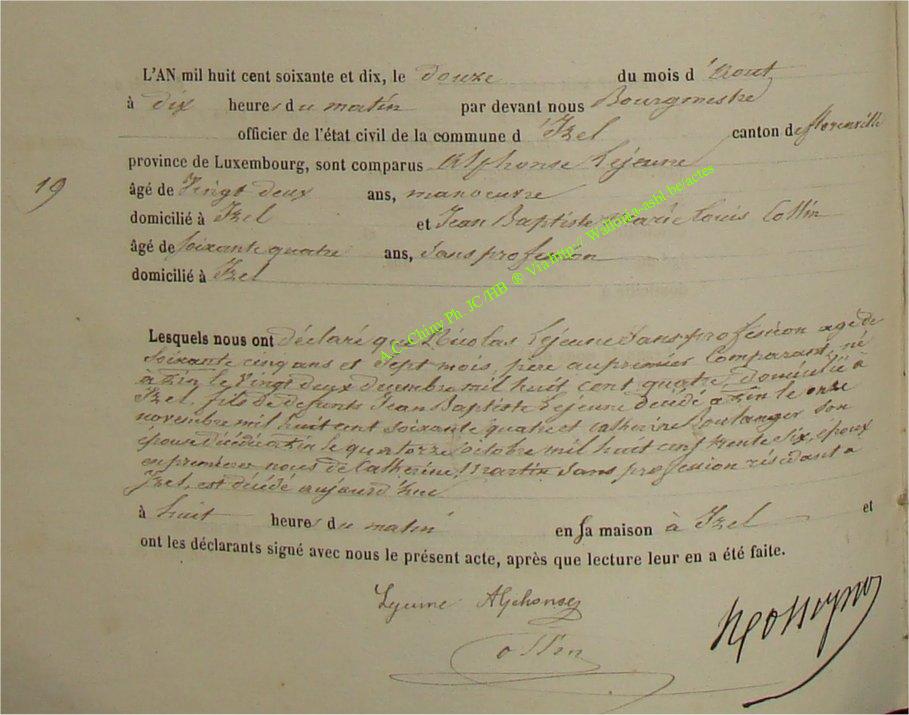 L'AN mil huit cent soixante et dix, le douze du mois d'Aout
à dix heures du matin par devant nous Bourgmestre
officier de l'état civil de la commune d'Izel canton de florenville
province de Luxembourg, sont comparus Alphonse Lejeune
19
âgé de Vingt deux ans, manoeuvre
domicilié à Izel et Jean Baptiste Marie Louis Collin
âgé de soixante quatre ans, sans profession
domicilié à Izel
A.C. Chiny Ph JC/HB ® Via http:// Wallonia-asbl.be/actes
Lesquels nous ont déclaré que Nicolas Lejeune sans profession agé de
soixante cinq ans et sept mois, père au premier Comparant, né
à le Vingt deux decembre mil huit cent quatre, domicilié à
Izel, fils de defunts Jean Baptiste Lejeune décédé à le onze
novembre mil huit cent soixante quatre et catherine Boulanger son
épouse décédée le quatorze octobre mil huit cent trente six, époux
en premières noces de Catherine Martin sans profession résidant à
Izel, est décédé aujourd'hui
à huit heures du matin en sa maison à Izel et
ont les déclarants signé avec nous le présent acte, après que lecture leur en a été faite.
Lejeune Alphonse
Collin